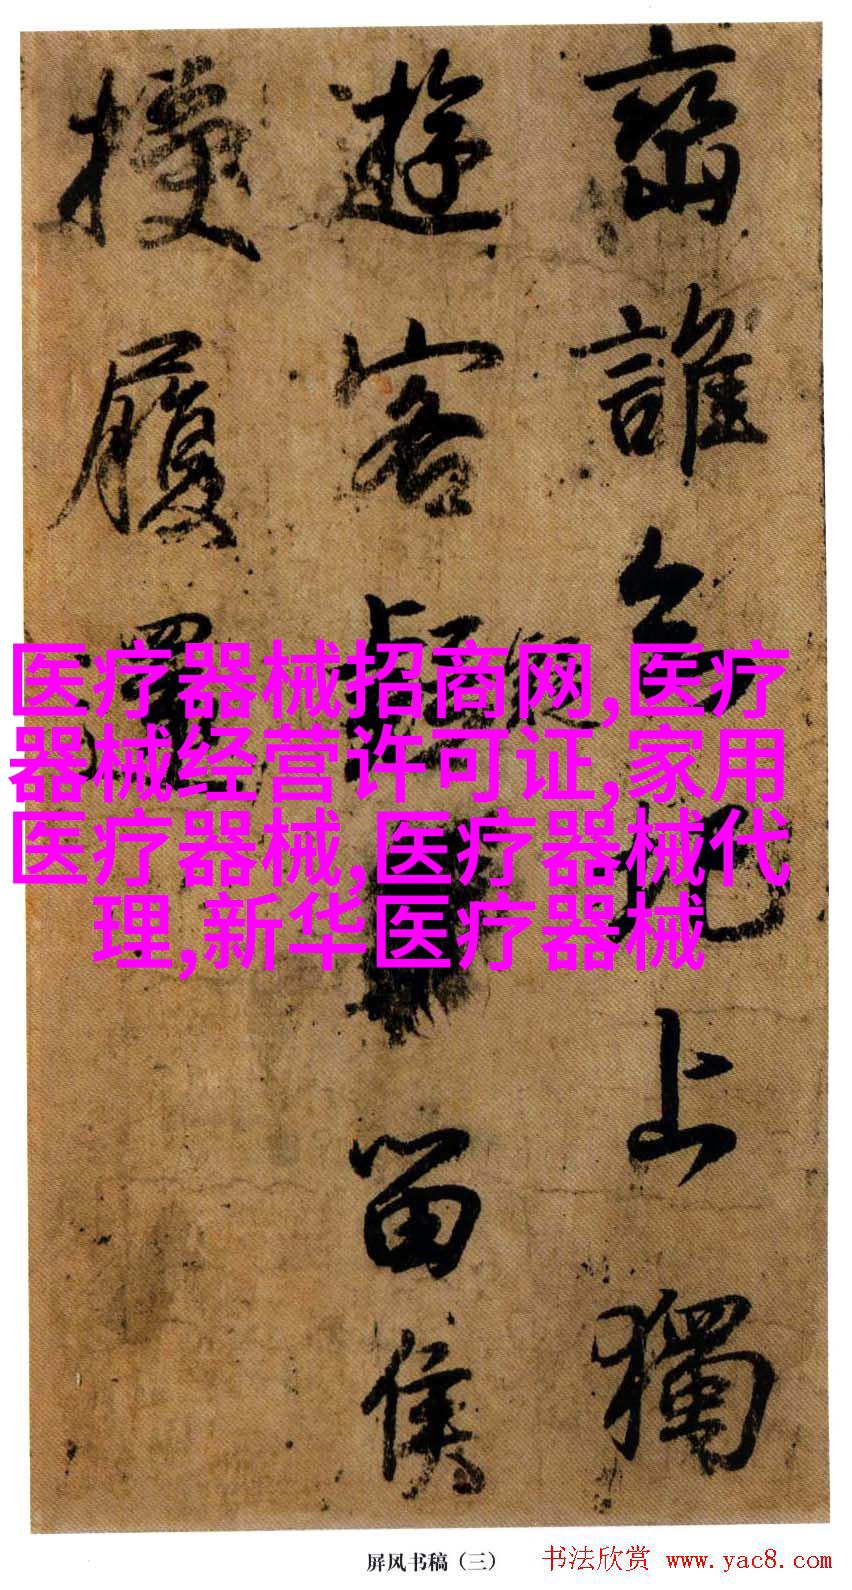 誰令上獨
遊客留侯
履
医疗器械招商网,医疗
器械经营许可证,家用
医疗器械,医疗器械代
理,新华医疗器械
屏风书稿（三）
书法欣赏 www.yac8.com